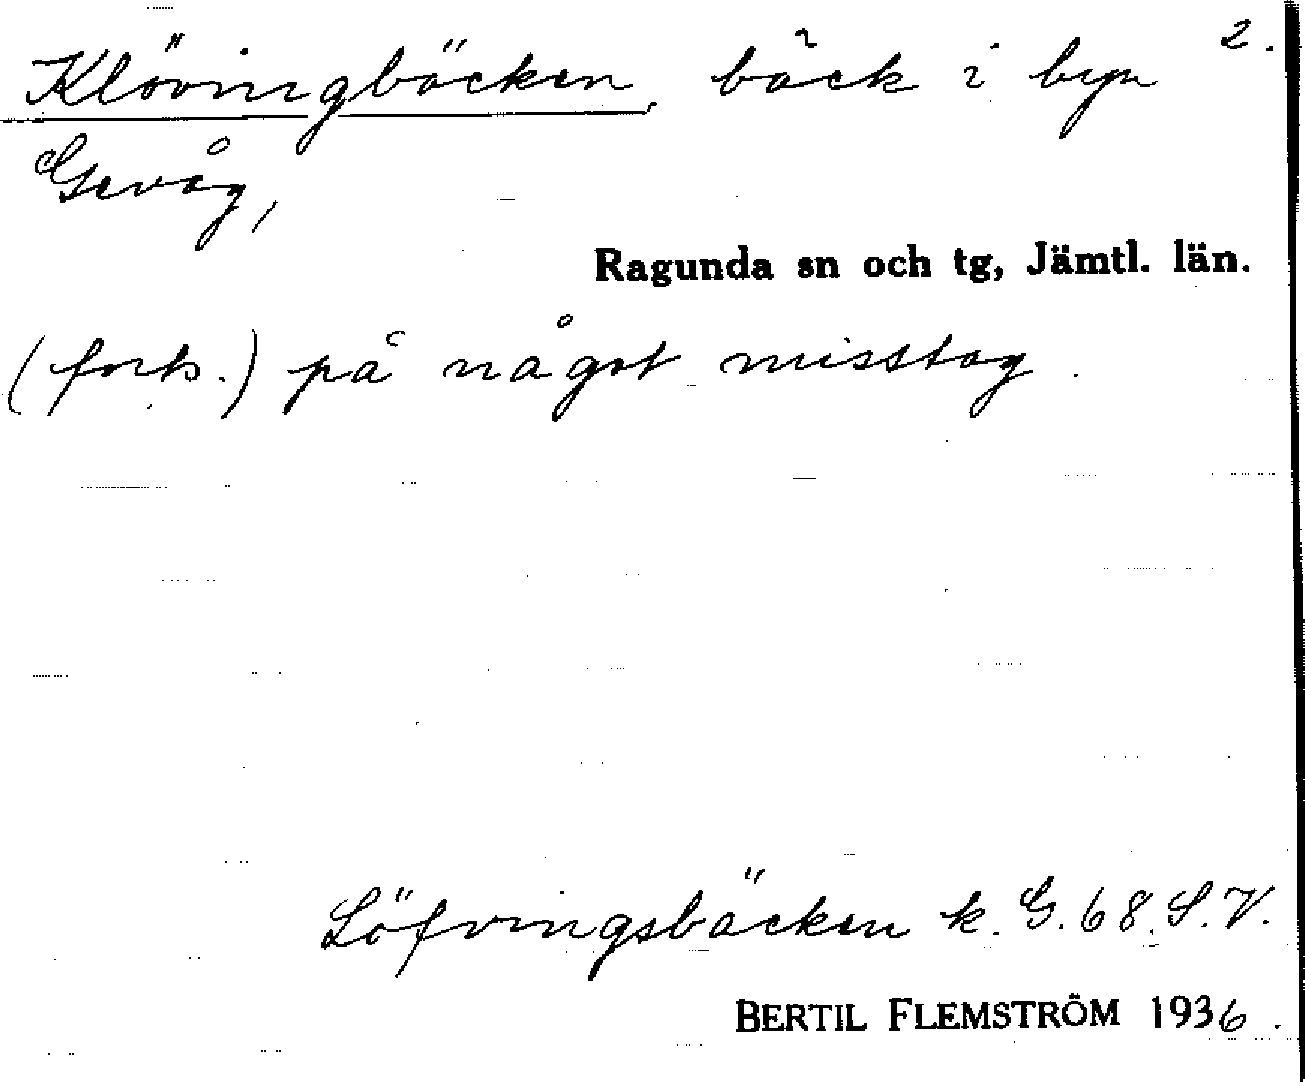 Klövingbäcken, bäck i byn 2.
Gevåg,
Ragunda sn och tg, Jämtl. län.
(forts.) på något misstag.
Löfvingsbäcken k. G. 68. S.V.
BERTIL FLEMSTRÖM 1936.